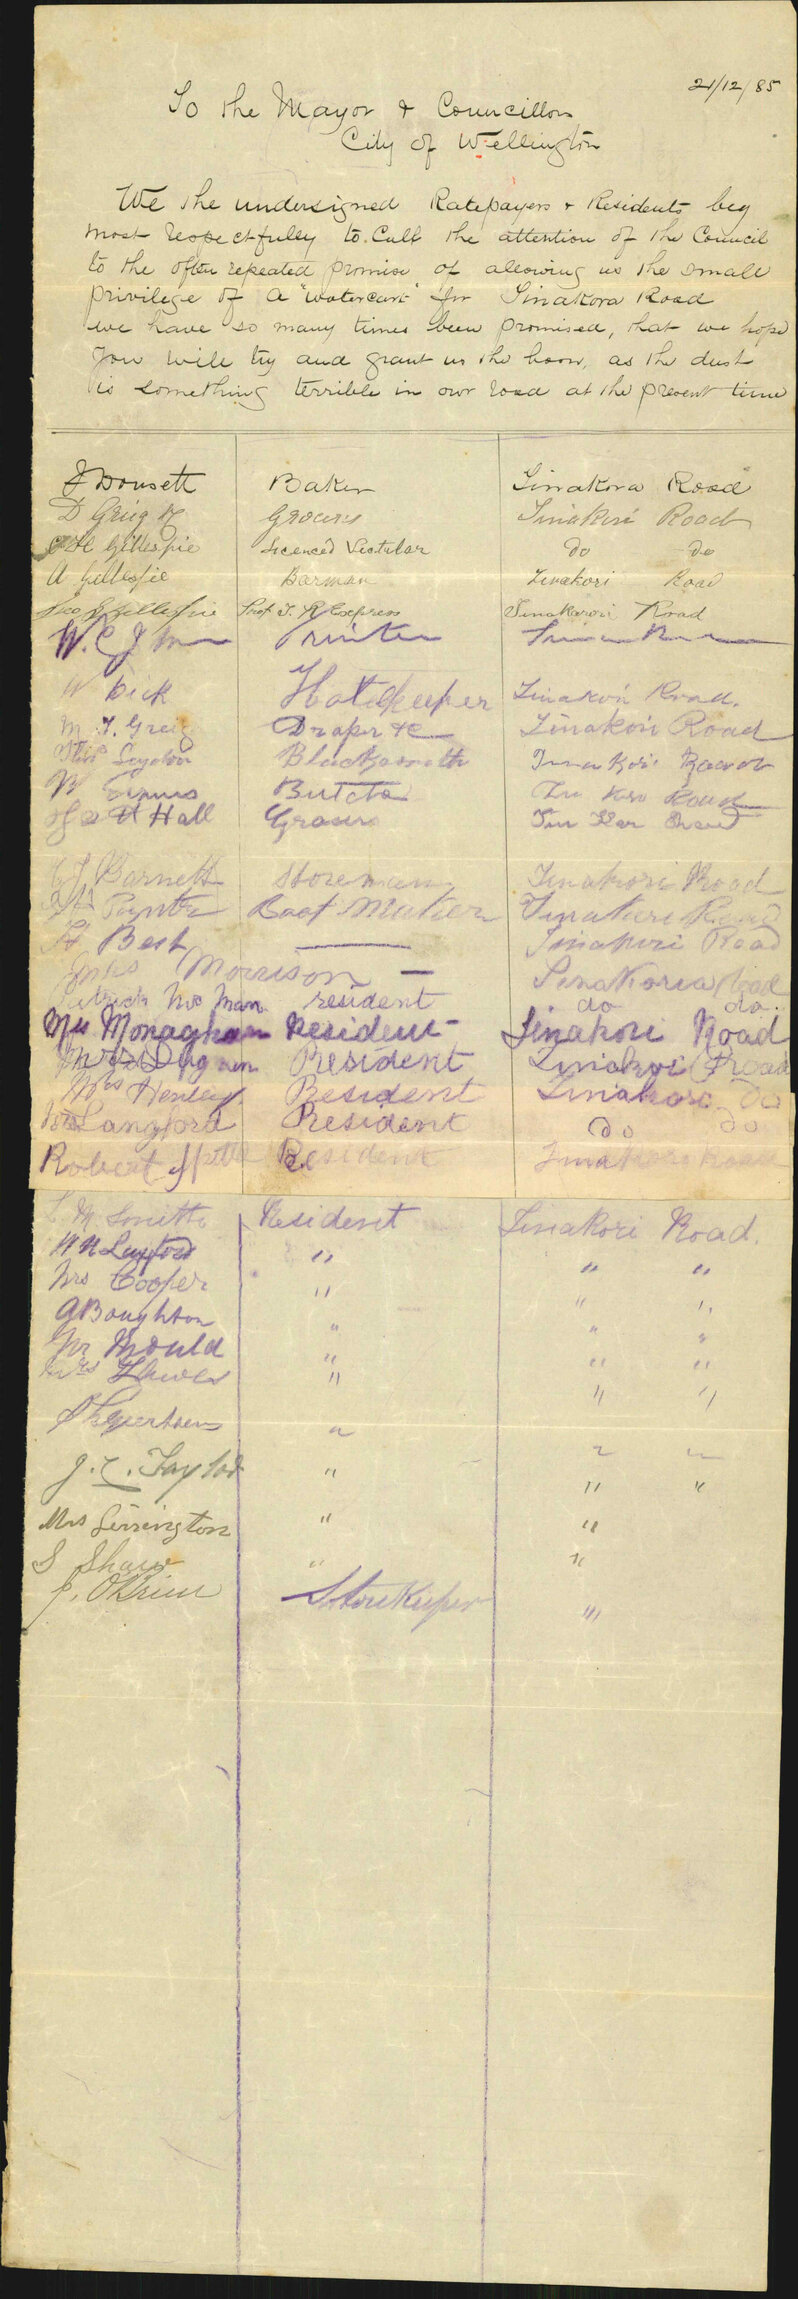 21/12/85
To the Mayor & Councillors
City of Wellington
We the undersigned Ratepayers & Residents beg
most respectfully to Call the attention of the Council
to the often repeated promise of allowing us the small
privilege of a "watercart" for Tinakora Road
we have so many times been promised, that we hope
you will try and grant us the boon, as the dust
is something terrible in our road at the present time
J Dousett Baker Tinakora Road
D Greig & Grocers Tinakori Road
Gillespie Licenced Victular do do
A Gillespie Barman Tinakori Road
Gillespie Prop T. R Express Tinakarori Road
W. C. J Printer
W Dick Hotelkeeper Tinakori Road.
M. J. Greig Draper &c Tinakori Road
Leydon Blacksmith Tinakori Road
W Butcher Road
Hall Grocers
Barnett Storeman Tinakori Road
Poynter Boot Maker Tinakori Road
H Best — Tinakori Road
Morrison — Tinakoria Road
Patrick Mc Man resident do do.
Mrs Monaghan Resident Tinakori Road
Resident Tinakori Road
Mrs Henley Resident Tinakori do
Langford Resident do do
Robert Resident Tinakori Road
M Smith Resident Tinakori Road.
" " "
Mrs Cooper " " "
A Boughton " " "
Mr Mould " " "
Mrs " " "
" " "
J. C. Taylor " " "
Mrs Lerrington " "
S Shaw " "
J. O'Brien Storekeeper "